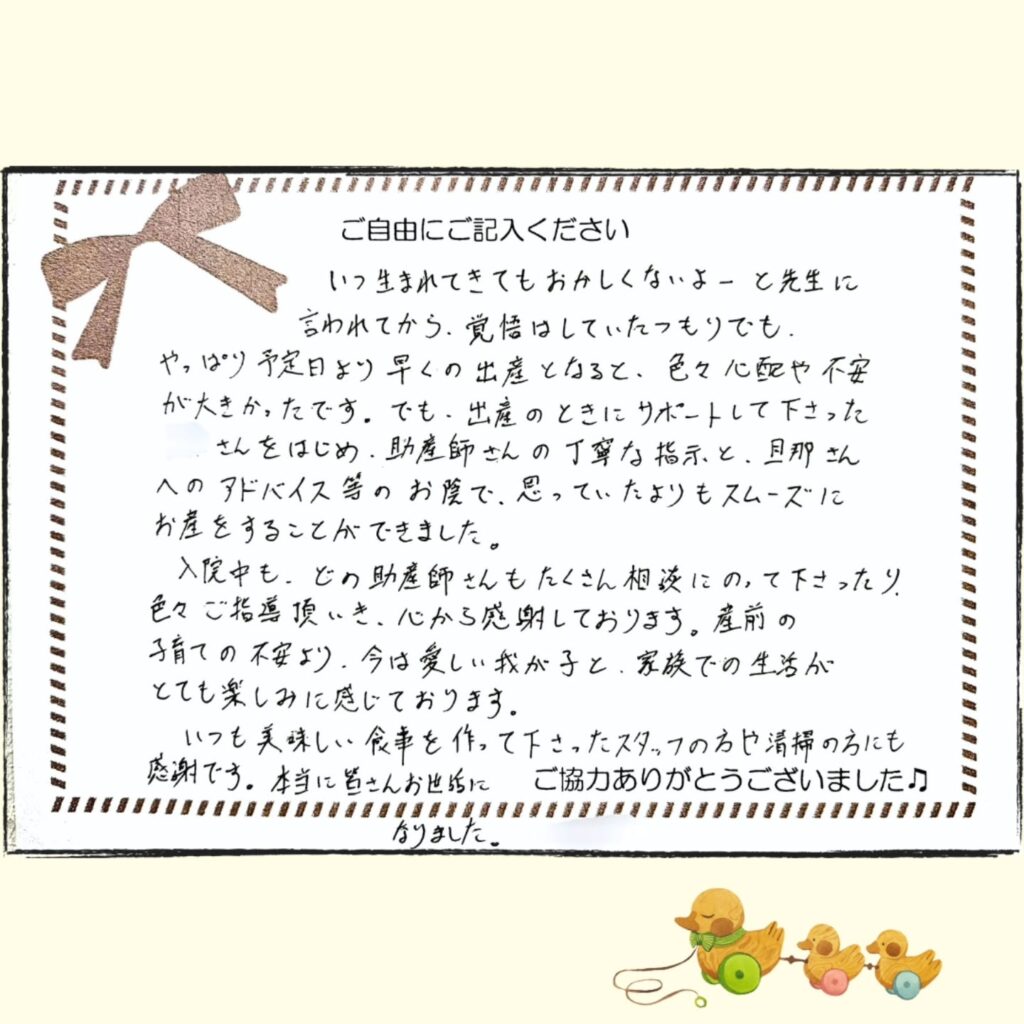 ご自由にご記入ください
いつ生まれてきてもおかしくないよーと先生に
言われてから、覚悟はしていたつもりでも、
やっぱり予定日より早くの出産となると、色々心配や不安
が大きかったです。でも、出産のときにサポートして下さった
さんをはじめ、助産師さんの丁寧な指示と、旦那さん
へのアドバイス等のお陰で、思っていたよりもスムーズに
お産をすることができました。
入院中も、どの助産師さんもたくさん相談にのって下さったり、
色々ご指導頂いき、心から感謝しております。産前の
子育ての不安より、今は愛しい我が子と、家族での生活が
とても楽しみに感じております。
いつも美味しい食事を作って下さったスタッフの方や清掃の方にも
感謝です。本当に皆さんお世話に
ご協力ありがとうございました♫
なりました。